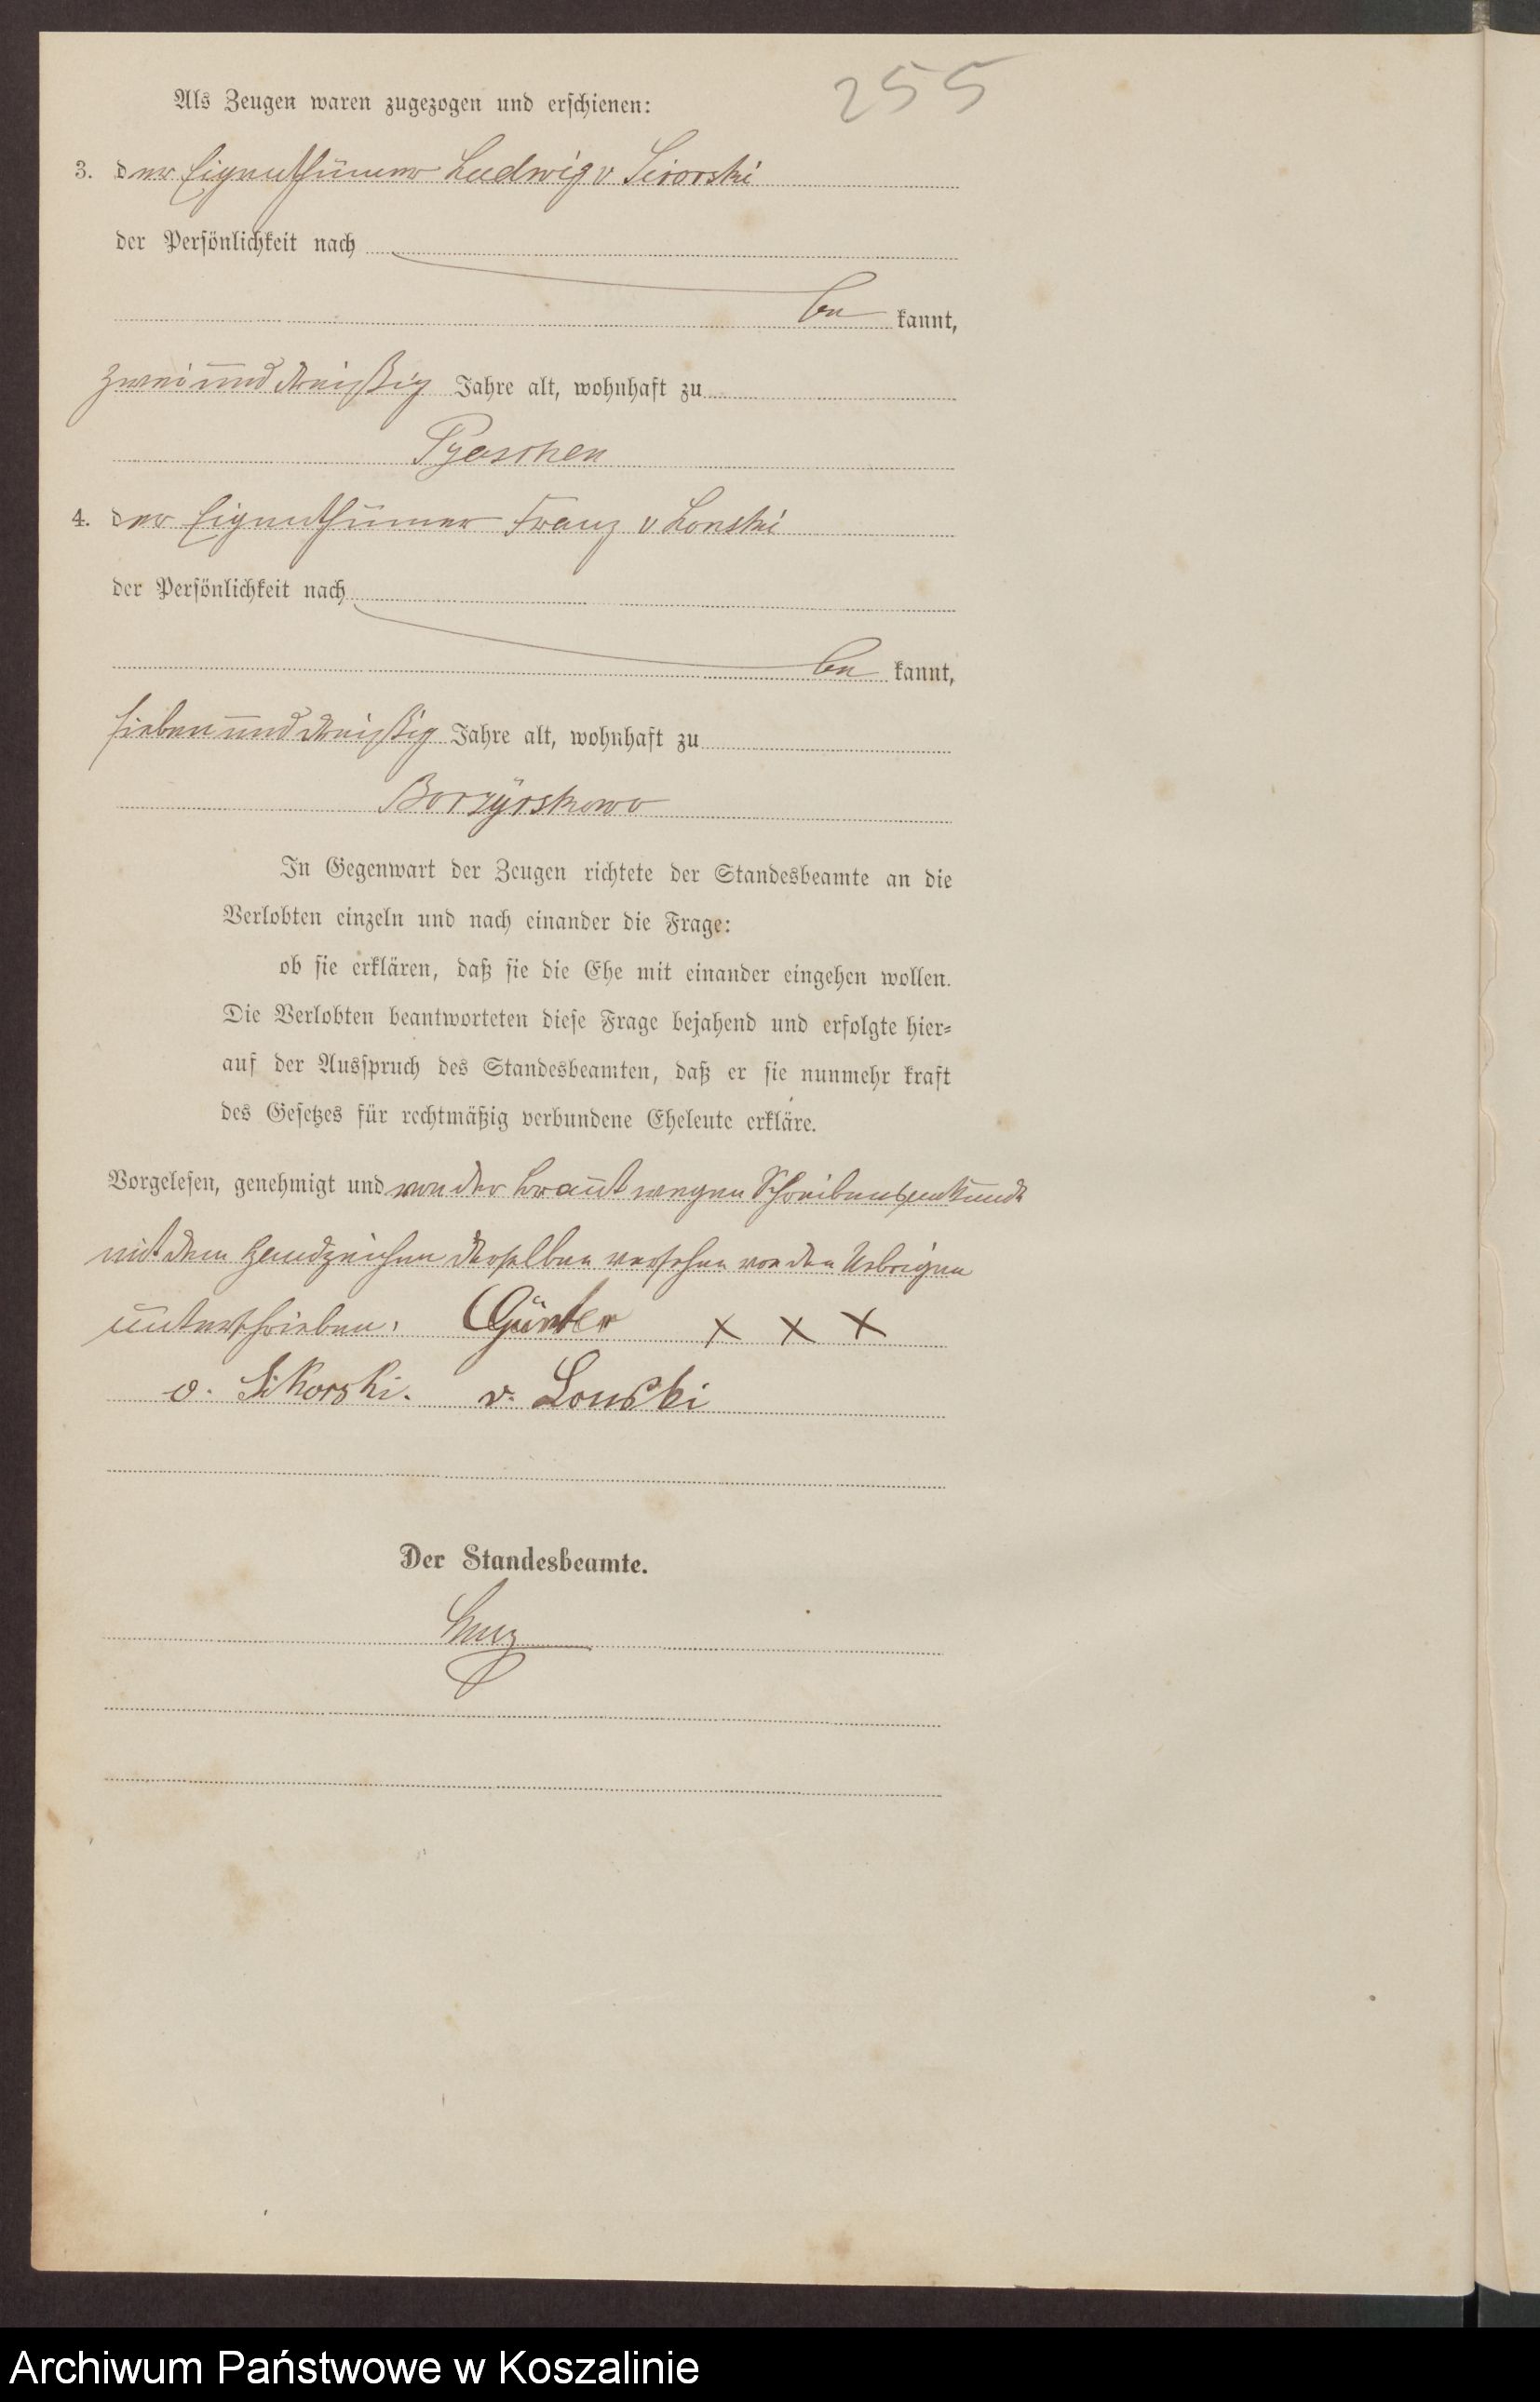 255
Als Zeugen waren zugezogen und erschienen:
3. der Eigenthümer Ludwig v
der Persönlichkeit nach
be kannt,
zweiunddreißig Jahre alt, wohnhaft zu
Pyaschen
4. der Eigenthümer Franz v Lonski
der Persönlichkeit nach
be kannt,
siebenunddreißig Jahre alt, wohnhaft zu
In Gegenwart der Zeugen richtete der Standesbeamte an die
Verlobten einzeln und nach einander die Frage:
ob sie erklären, daß sie die Ehe mit einander eingehen wollen.
Die Verlobten beantworteten diese Frage bejahend und erfolgte hier-
auf der Ausspruch des Standesbeamten, daß er sie nunmehr kraft
des Gesetzes für rechtmäßig verbundene Eheleute erkläre.
Vorgelesen, genehmigt und von der Braut wegen Schreibensunkunde
mit dem Handzeichen derselben versehen von den Uebrigen
unterschrieben. Günter x x x
v. Sikorski. v. Lonski
Der Standesbeamte.
Archiwum Państwowe w Koszalinie